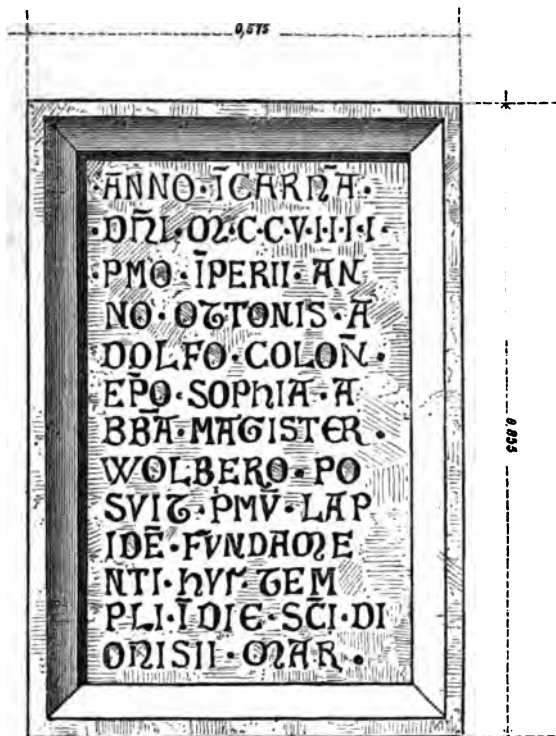 0,575
·ANNO·ĪCARNĀ·
·DÑI·M·C·C·V·I·I·I·I·
·PMO·ĪPERII·AN
NO·OTTONIS·A
DOLFO·COLOÑ·
EP̄O·SOPHIA·A
BB̄A·MAGISTER·
WOLBERO·PO
SVIT·P̄MV̄·LAP
IDĒ·FVNDAME
NTI·HVIꝰ·TEM
PLI·Ī·DIE·SC̄I·DI
ONISII·MAR·
0,855